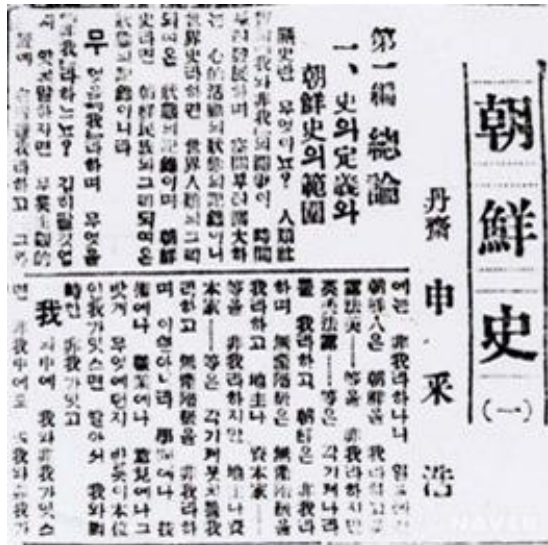 朝鮮史
(一)
丹齋 申采浩
第一編 總論
一、史의定義와
朝鮮史의範圍
歷史란 무엇이뇨? 人類社
會의我와非我의鬪爭이 時間
부터發展하며 空間부터擴大하
는 心的活動의狀態의記錄이니
世界史라하면 世界人類의그러
되여온 狀態의記錄이며 朝鮮
史라면 朝鮮民族의그러되여온
狀態의記錄이니라
무엇을我라하며 무엇을
非我라하느뇨? 깁히팔것업
얏게말하자면 무릇主觀的
라하고
에는 非我라하나니
朝鮮人은 朝鮮을 我라하고
露法美——等을 非我라하지만
英美法露——等은 각기저나라
를 我라하고 朝鮮은 非我라
하며 無産階級은 無産階級을
我라하고 地主나 資本家——
等을 非我라하지만 地主나資
本家——等은 각기저붓치를我
라하고 無産階級을 非我라하
며 이뿐아니라 學問에나 技
術에나 職業에나 意見에나그
밧게 무엇에던지 반듯이本位
인我가잇스면 딸아서 我와對
峙한 非我가잇고
我의中에 我와非我가잇스
면 非我中에도 我와非我
NAVER